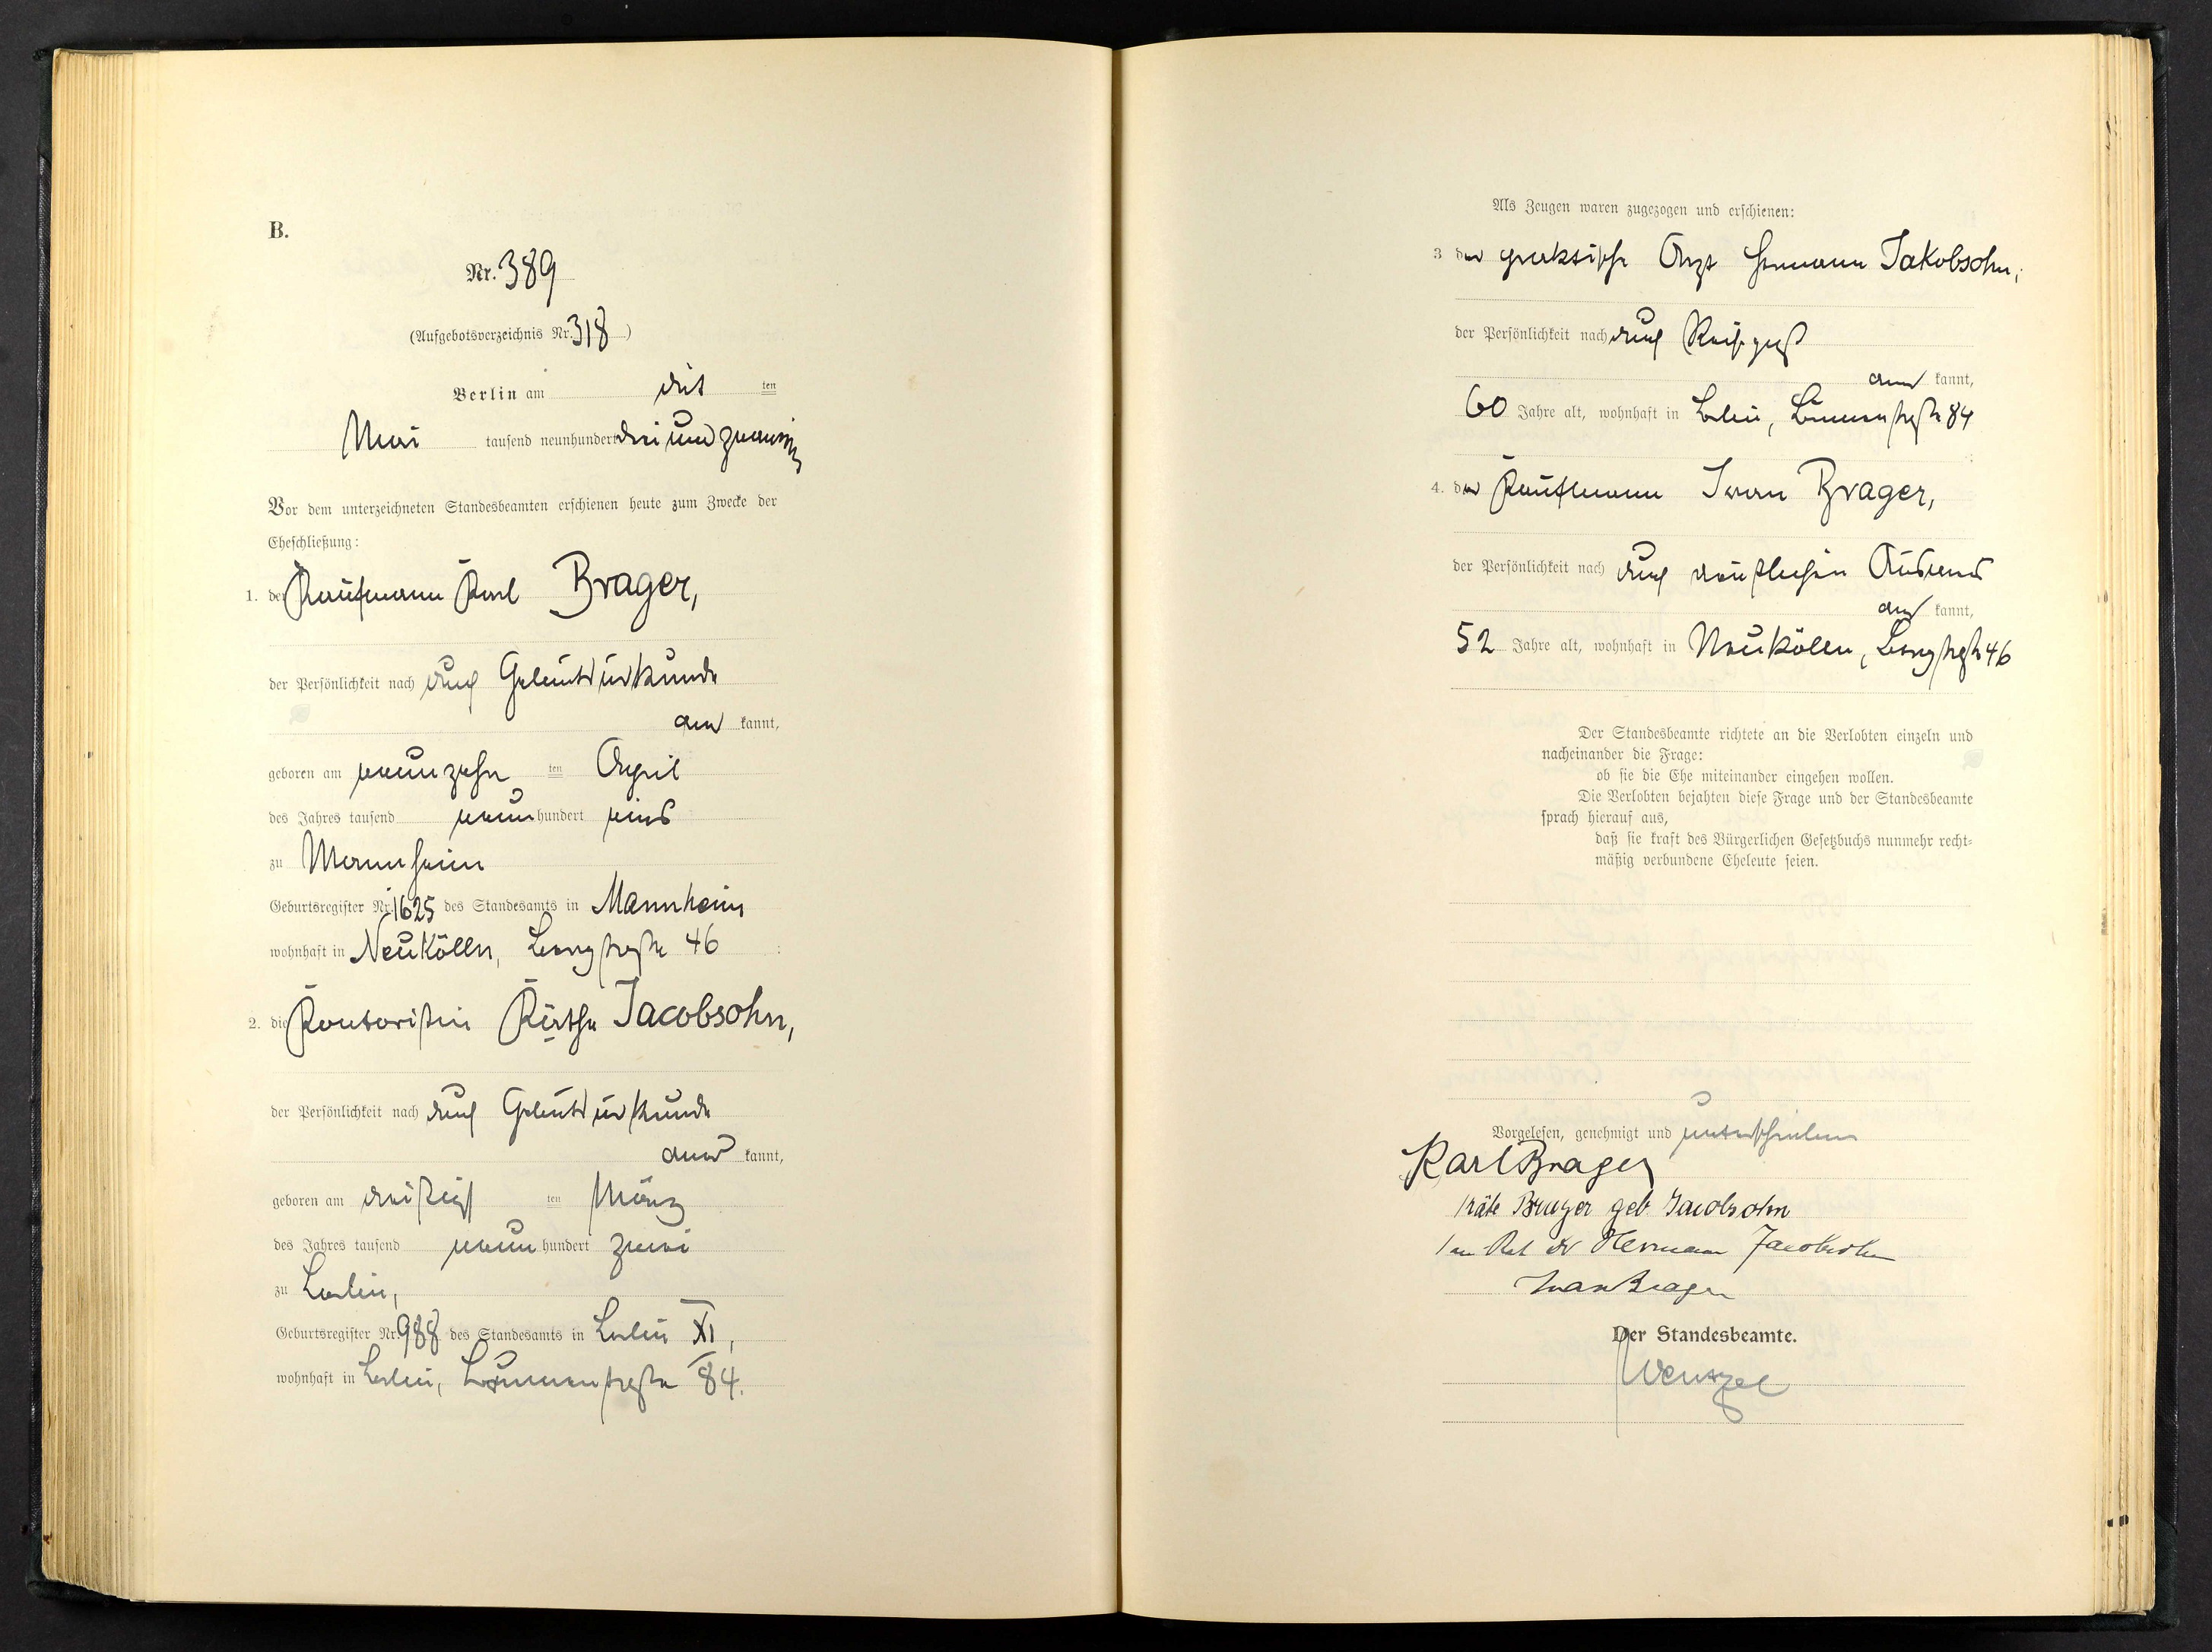 B.
Nr. 389
(Aufgebotsverzeichnis Nr. 318)
Berlin am dritten
Mai tausend neunhundert drei und zwanzig
Vor dem unterzeichneten Standesbeamten erschienen heute zum Zwecke der
Eheschließung:
1. der Kaufmann Karl Brager,
der Persönlichkeit nach durch Geburtsurkunde
anerkannt,
geboren am neunzehnten April
des Jahres tausend neunhundert eins
zu Mannheim
Geburtsregister Nr. 1625 des Standesamts in Mannheim
wohnhaft in Neukölln, Bergstraße 46
2. die Kontoristin Käthe Jacobsohn,
der Persönlichkeit nach durch Geburtsurkunde
anerkannt,
geboren am dreißigsten März
des Jahres tausend neunhundert zwei
zu Berlin,
Geburtsregister Nr. 988 des Standesamts in Berlin XI,
wohnhaft in Berlin, Brunnenstraße 84.
Als Zeugen waren zugezogen und erschienen:
3 der praktische Arzt Hermann Jakobsohn,
der Persönlichkeit nach durch Reisepaß
anerkannt,
60 Jahre alt, wohnhaft in Berlin, Brunnenstraße 84
4. der Kaufmann Iwan Brager,
der Persönlichkeit nach durch Ausweis
anerkannt,
52 Jahre alt, wohnhaft in Neukölln, Bergstraße 46
Der Standesbeamte richtete an die Verlobten einzeln und
nacheinander die Frage:
ob sie die Ehe miteinander eingehen wollen.
Die Verlobten bejahten diese Frage und der Standesbeamte
sprach hierauf aus,
daß sie kraft des Bürgerlichen Gesetzbuchs nunmehr recht-
mäßig verbundene Eheleute seien.
Vorgelesen, genehmigt und unterschrieben
Karl Brager
Käte Brager geb Jacobsohn
San Rat Dr Hermann Jacobsohn
Iwan Brager
Der Standesbeamte.
Wentzel